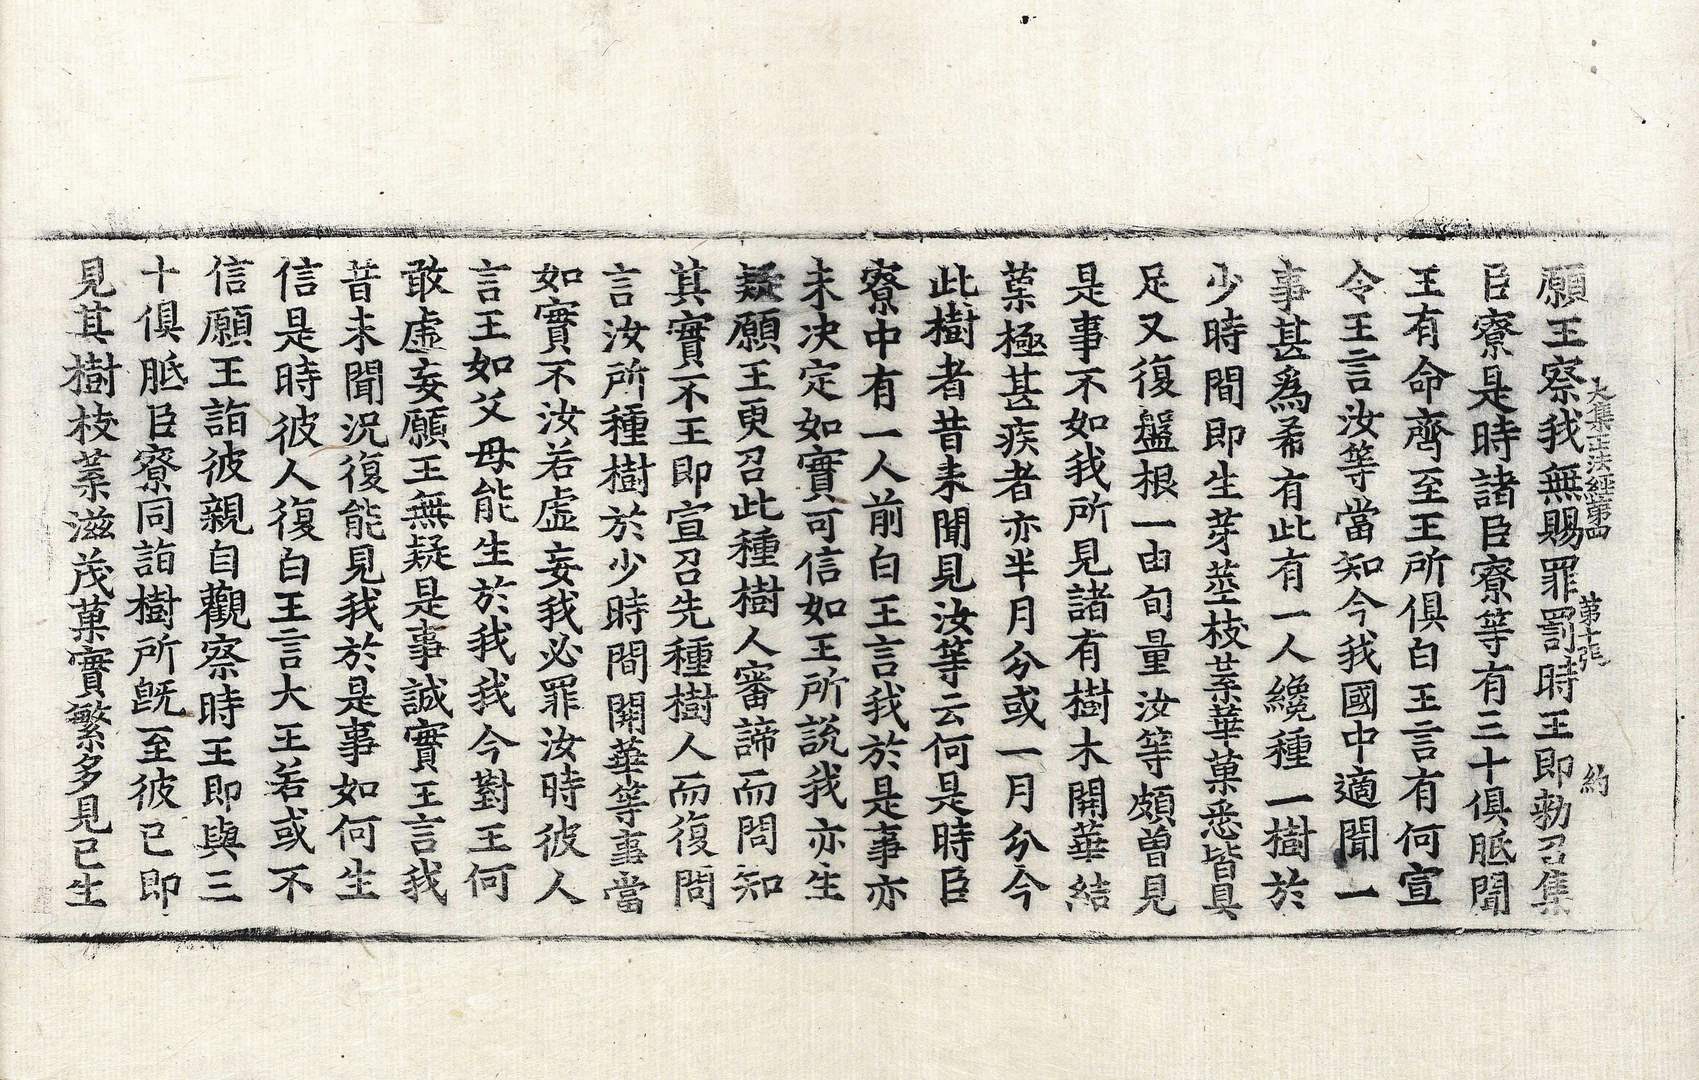 大集正法經第四　第十張　約
願王察我無賜罪罰時王即勑召集
臣寮是時諸臣寮等有三十俱胝聞
王有命齊至王所俱白王言有何宣
令王言汝等當知今我國中適聞一
事甚為希有此有一人纔種一樹於
少時間即生芽莖枝葉華菓悉皆具
足又復盤根一由旬量汝等頗曾見
是事不如我所見諸有樹木開華結
菓極甚疾者亦半月分或一月分今
此樹者昔未聞見汝等云何是時臣
寮中有一人前白王言我於是事亦
未決定如實可信如王所說我亦生
疑願王更召此種樹人審諦而問知
其實不王即宣召先種樹人而復問
言汝所種樹於少時間開華等事當
如實不汝若虛妄我必罪汝時彼人
言王如父母能生於我我今對王何
敢虛妄願王無疑是事誠實王言我
昔未聞況復能見我於是事如何生
信是時彼人復白王言大王若或不
信願王詣彼親自觀察時王即與三
十俱胝臣寮同詣樹所旣至彼已即
見其樹枝葉滋茂菓實繁多見已生